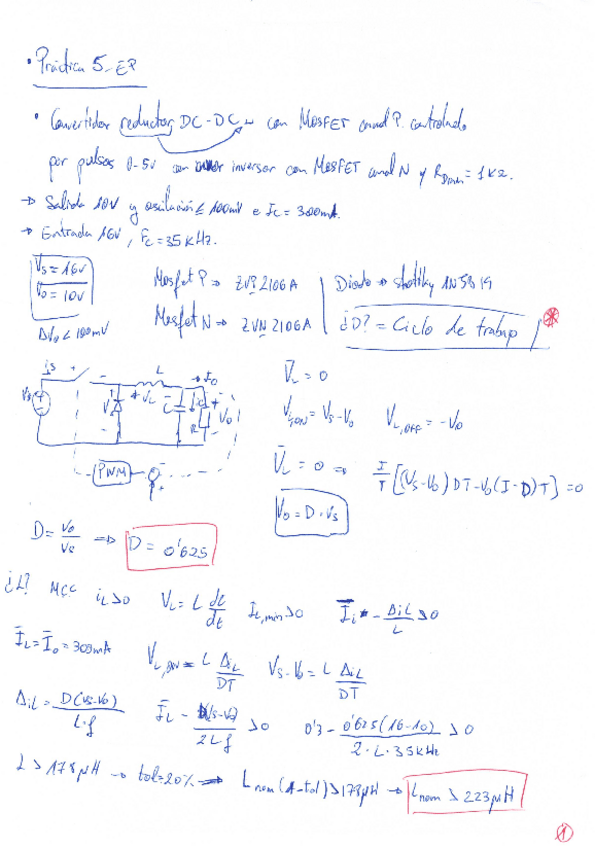 • Práctica 5-EP
• Convertidor reductor DC-DC con MOSFET canal P. controlado
por pulsos 0-5v con inversor con MOSFET canal N y RDmin = 1KΩ.
→ Salida 10V y oscilación ≤ 100mV e IL = 300mA.
→ Entrada 16V, Fc = 35KHz.
Vs = 16v
Vo = 10v
ΔVo < 100mV
Mosfet P → ZVP 2106A
Mosfet N → ZVN 2106A
Diodo → shottky 1N5819
¿D? = Ciclo de trabajo *
is
L
+ VL -
→ Io
Vo
PWM
V̄L = 0
VL,ON = Vs-Vo VL,OFF = -Vo
V̄L = 0 ⇒ 1/T [(Vs-Vo) DT - Vo (1-D) T] = 0
Vo = D · Vs
D = Vo/Vs ⇒ D = 0'625
¿L? MCC iL>0 VL = L di/dt IL,min>0 ĪL - ΔiL/L >0
ĪL = Īo = 300mA VL,ON = L ΔiL/DT Vs-Vo = L ΔiL/DT
ΔiL = D(Vs-Vo)/L·f ĪL - D(Vs-Vo)/2Lf >0 0'3 - 0'625(16-10)/2·L·35KHz >0
L > 178µH → tol=20% → Lnom (1-tol) > 178µH → Lnom > 223µH
1